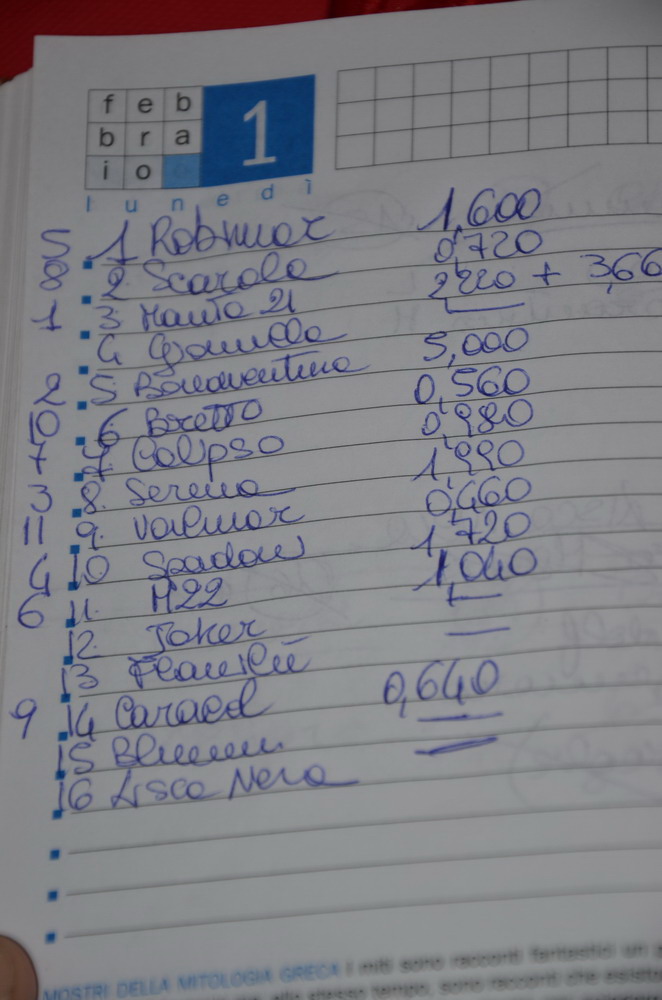 feb
bra
io
1
lunedì
5 1 Robmar 1,600
8 2 Scarola 0,720
1 3 Manta 21 2220 + 3,66
4 —
2 5 Bonaventura 5,000
10 6 Boetto 0,560
7 7 Calipso 0,980
3 8. Serena 1,990
11 9. Valmar 0,460
4 10 1,720
6 11. M22 1,040
12. Joker —
13 —
9 14 0,640
15 —
16 Lisca Nera —
MOSTRI DELLA MITOLOGIA GRECA I miti sono racconti fantastici un
allo stesso tempo, sono racconti che